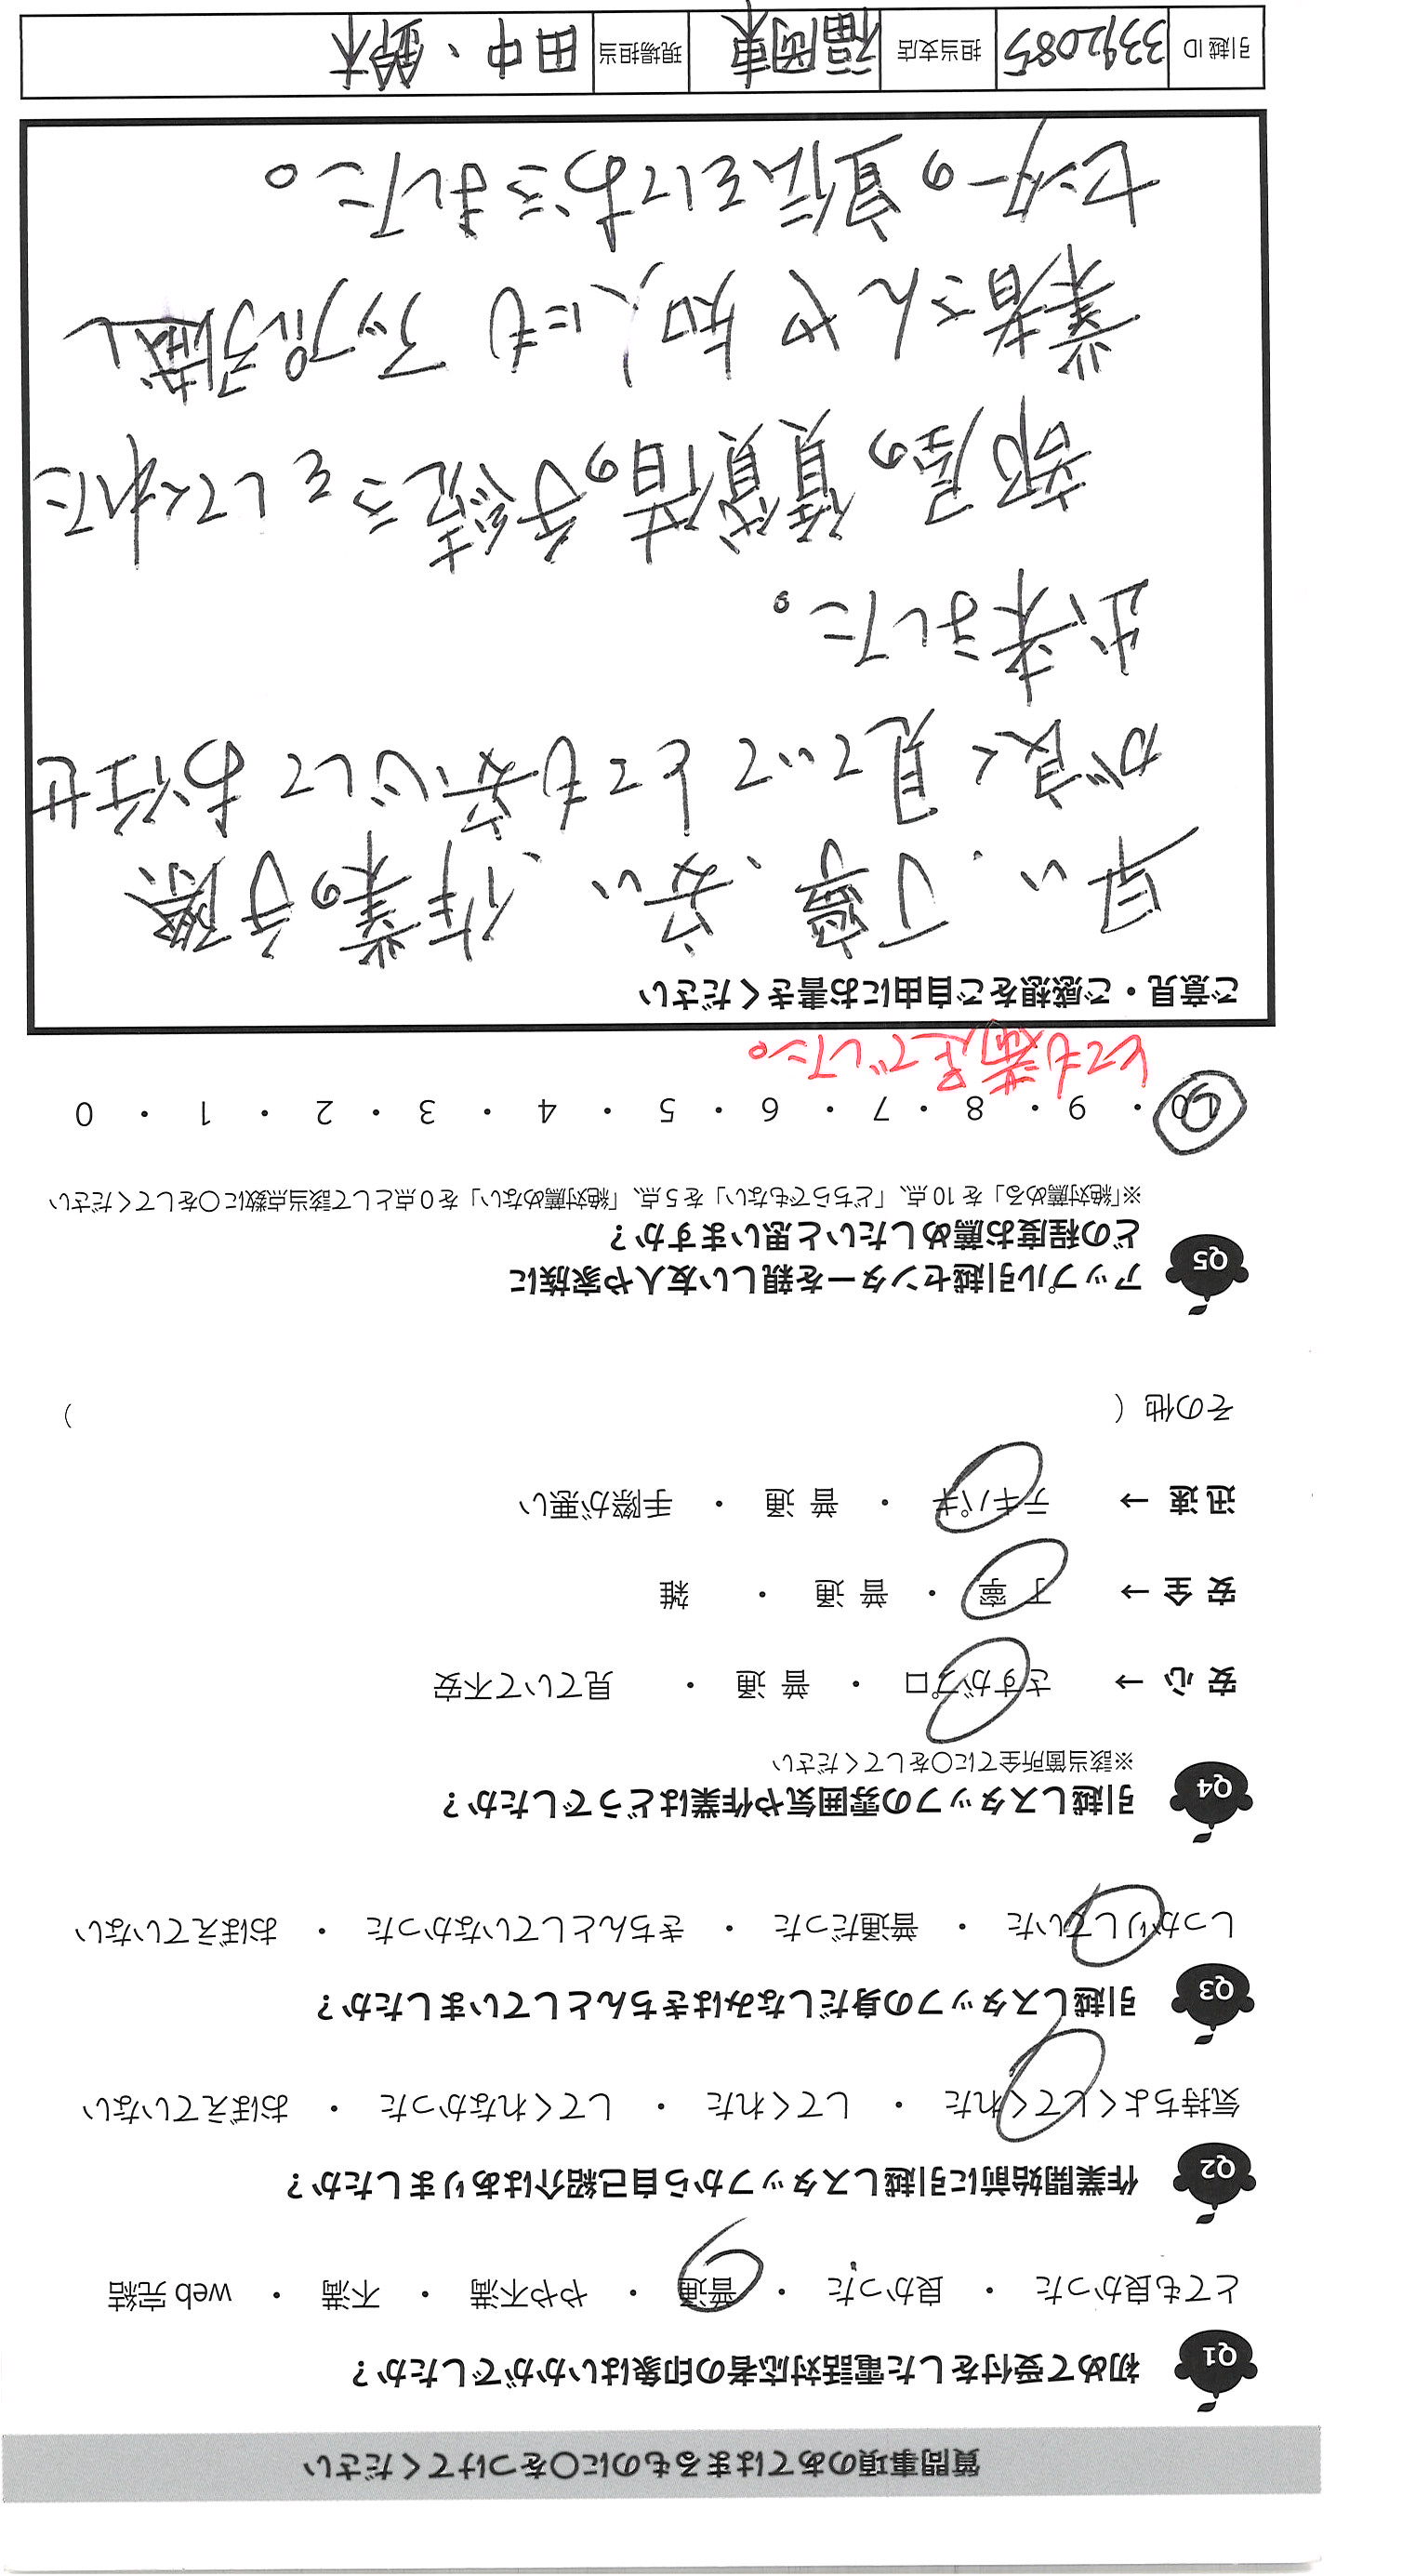 質問事項のあてはまるものに〇をつけてください
Q1 初めて受付をした電話対応者の印象はいかがでしたか?
とても良かった ・ 良かった ・ 普通 ・ やや不満 ・ 不満 ・ web 完結
Q2 作業開始前に引越しスタッフから自己紹介はありましたか?
気持ちよくしてくれた ・ してくれた ・ してくれなかった ・ おぼえていない
Q3 引越しスタッフの身だしなみはきちんとしていましたか?
しっかりしていた ・ 普通だった ・ きちんとしていなかった ・ おぼえていない
Q4 引越しスタッフの雰囲気や作業はどうでしたか?
※該当箇所全てに〇をしてください
安 心 → さすがプロ ・ 普 通 ・ 見ていて不安
安 全 → 丁 寧 ・ 普 通 ・ 雑
迅 速 → テキパキ ・ 普 通 ・ 手際が悪い
その他 ( )
Q5 アップル引越センターを親しい友人や家族に
どの程度お薦めしたいと思いますか?
※「絶対薦める」を 10 点、「どちらでもない」を 5 点、「絶対薦めない」を 0 点として該当点数に〇をしてください
10 ・ 9 ・ 8 ・ 7 ・ 6 ・ 5 ・ 4 ・ 3 ・ 2 ・ 1 ・ 0
とても満足でした。
ご意見・ご感想をご自由にお書きください
早い、丁寧、安い、作業の手際
が良く見ていてとても安心してお任せ
出来ました。
部屋の賃貸借の手続きをしてくれた
業者さんや知人にもアップル引越し
センターの宣伝をしておきました。
引越 ID 3392085 担当支店 福岡東 現場担当 田中、鈴木